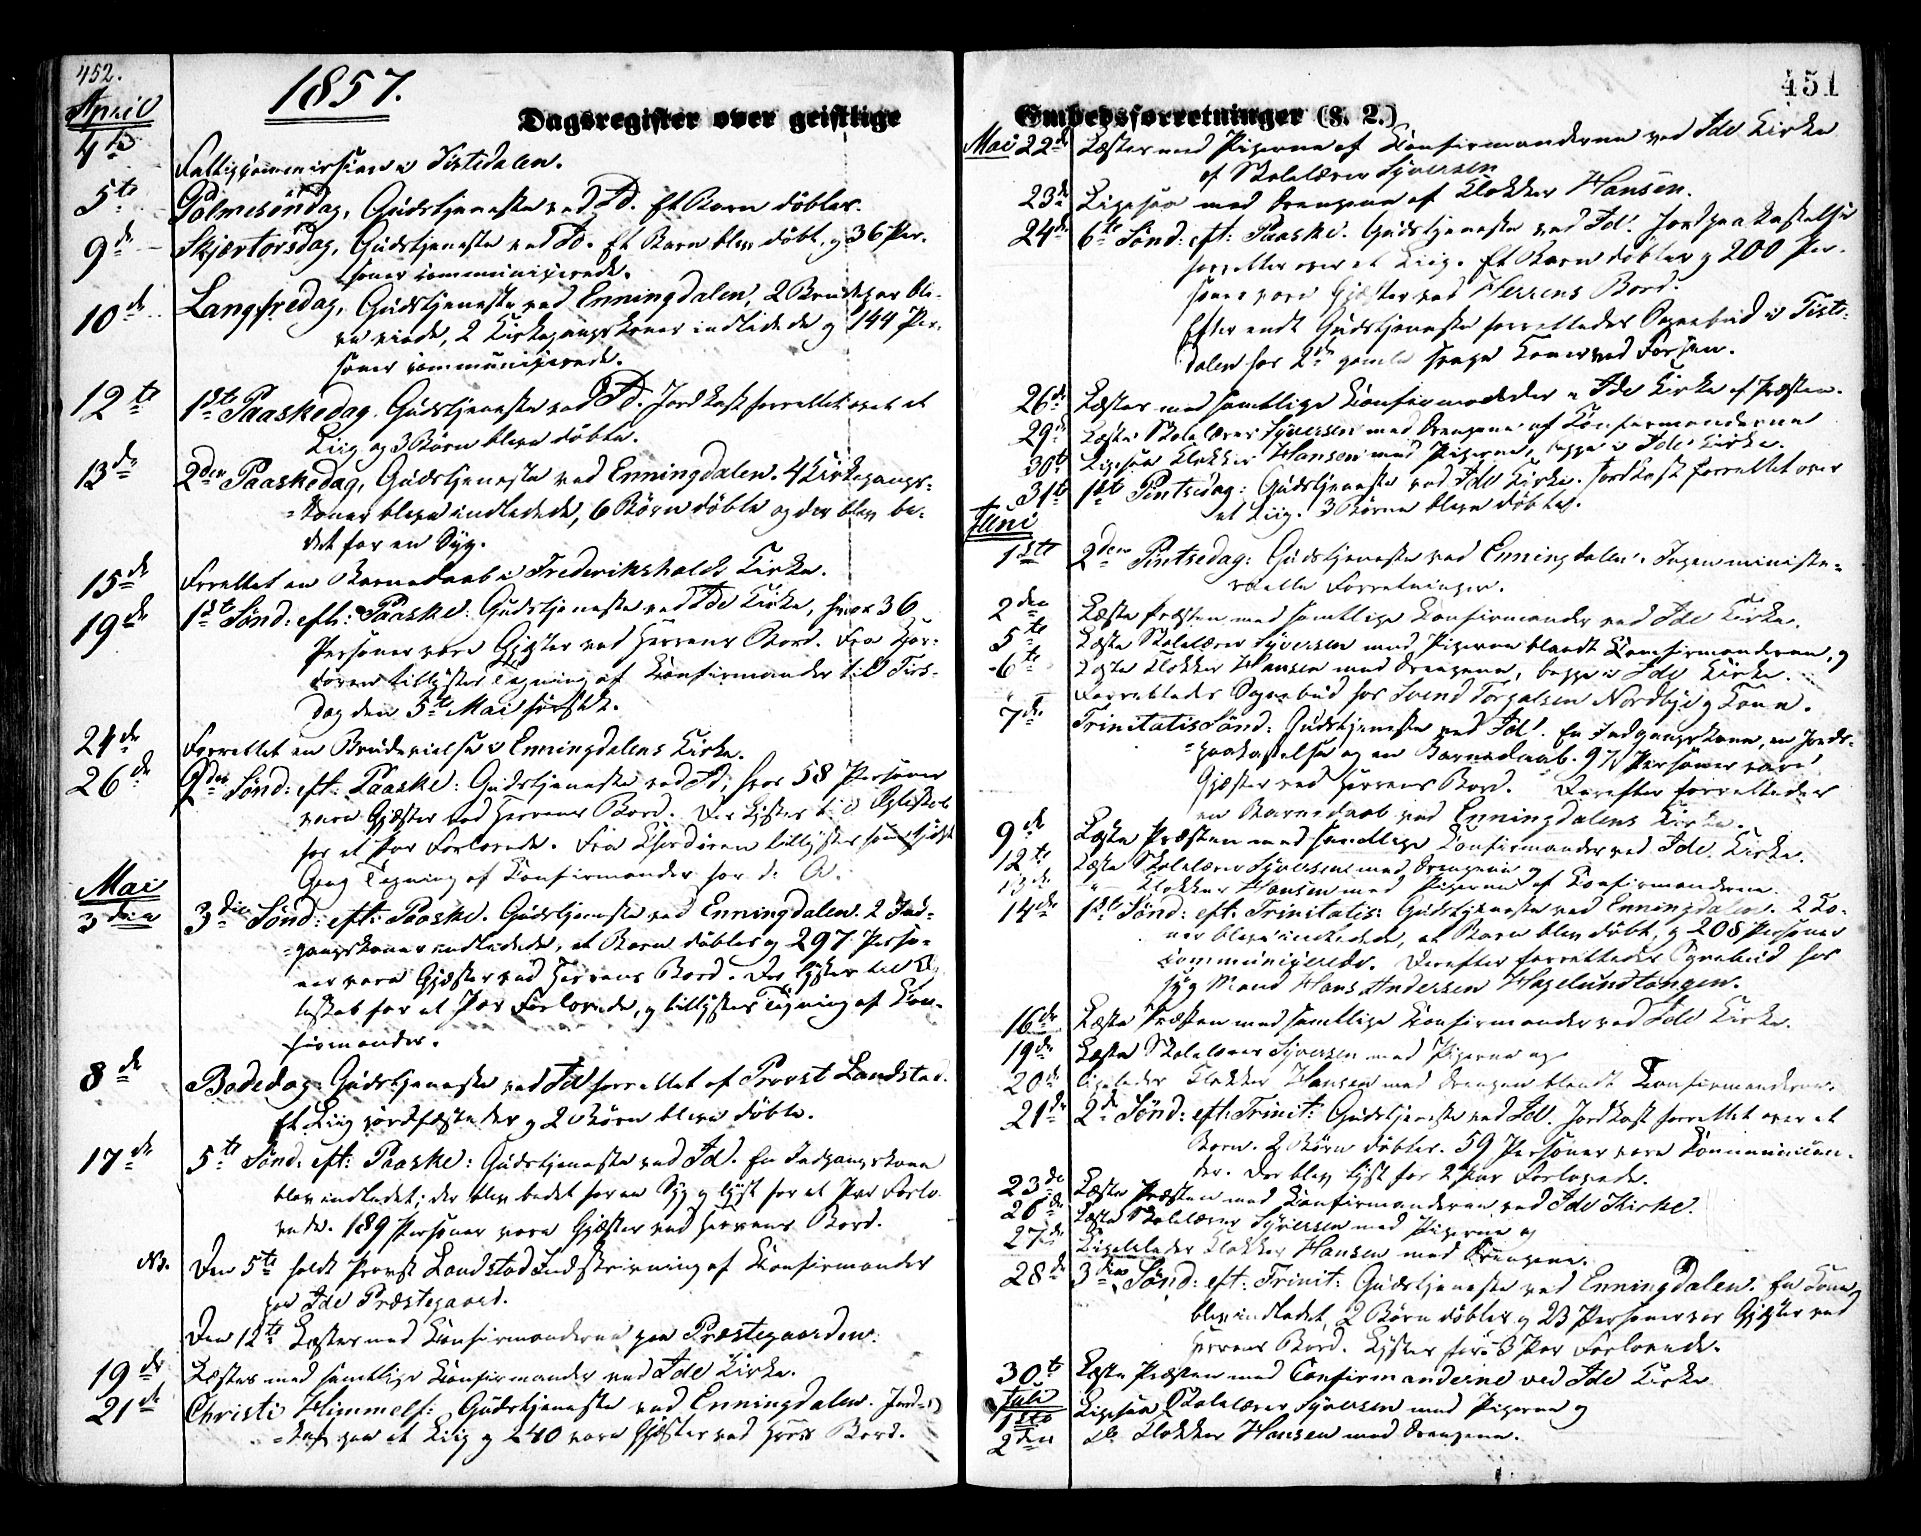 452.
1857.
Dagsregister over geistlige
April
4de Fattigcommission i Tistedalen.
5te Palmesøndag, Gudstjeneste ved Id. Et Barn døbtes.
9de Skjærtorsdag, Gudstjeneste ved Id. Et Barn blev døbt, og 36 Per-
soner communicerede.
10de Langfredag, Gudstjeneste ved Enningdalen, 2 Brudepar ble-
ve viede, 2 Kirkegangskoner indledede og 144 Per-
soner communicerede.
12te 1ste Paaskedag. Gudstjeneste ved Id. Jordkast forrettet over et
Liig og 3 Børn bleve døbte.
13de 2den Paaskedag, Gudstjeneste ved Enningdalen. 4 Kirkegangs-
koner bleve indledede, 6 Børn døbte og der blev be-
det for en Syg.
15de Forrettet en Barnedaab i Frederikshalds Kirke.
19de 1ste Sønd: eft: Paaske: Gudstjeneste ved Ide Kirke, hvor 36
Personer vare Gjæster ved Herrens Bord. Fra Chor-
døren tillystes Tegning af Konfirmander til Tirs-
dag den 5te Mai
24de Forrettet en Brudevielse i Enningdalens Kirke.
26de 2den Sønd: eft: Paaske: Gudstjeneste ved Id, hvor 58 Personer
vare Gjæster ved Herrens Bord. Der lystes til Ægteskab
for et Par Forlovede. Fra Chordøren tillystes
Gang Tegning af Konfirmander for d: A.
Mai
3die 3die Sønd: eft: Paaske. Gudstjeneste ved Enningdalen. 2 Ind-
gangskoner indledede, et Barn døbtes og 297 Perso-
ner vare Gjæster ved Herrens Bord. Der lystes til Æg-
teskab for et Par Forlovede, og tillystes Tegning af Kon-
firmander.
8de Bededag: Gudstjeneste ved Id forrettet af Provst Landstad.
Et Liig jordfæstedes og 2 Børn bleve døbte.
17de 5te Sønd: eft: Paaske: Gudstjeneste ved Id. En Indgangskone
blev indledet, der blev bedet for en Syg og lyst for et Par Forlo-
vede. 189 Personer vare Gjæster ved Herrens Bord.
NB. Den 5te holdt Provst Landstad Indskrivning af Konfirmander
paa Ide Præstegaard.
Den 12te Læstes med Konfirmanderne paa Præstegaarden.
19de Læstes med samtlige Konfirmander ved Ide Kirke.
21de Christi Himmelf: Gudstjeneste ved Enningdalen. Jord-
kast paa et Liig og 240 vare Gjæster ved Herrens Bord.
451
Embedsforretninger (§. 2.)
Mai 22de Læstes med Pigerne af Konfirmanderne ved Ide Kirke
af Skolelærer Syversen
23de Ligesaa med Drengene af Klokker Hansen.
24de 6te Sønd: eft: Paaske. Gudstjeneste ved Id. Jordpaakastelse
forrettes over et Liig. Et Barn døbtes og 200 Per-
soner vare Gjæster ved Herrens Bord.
Efter endt Gudstjeneste forrettedes Sognebud i Tiste-
dalen hos 2de gamle svage Koner ved Fossen.
26de Læstes med samtlige Konfirmander i Ide Kirke af Præsten.
29de Læste Skolelærer Syversen med Drengene af Konfirmanderne
30te Ligesaa Klokker Hansen med Pigerne, begge i Ide Kirke.
31te 1ste Pintsedag: Gudstjeneste ved Ide Kirke. Jordkast forrettet over
et Liig. 3 Børn bleve døbte.
Juni
1ste 2den Pintsedag: Gudstjeneste ved Enningdalen. Ingen ministe-
rielle Forretninger.
2den Læste Præsten med samtlige Konfirmander ved Ide Kirke.
5te Læste Skolelærer Syversen med Pigerne blandt Konfirmanderne, og
6te Læste Klokker Hansen med Drengene, begge i Ide Kirke.
Forrettedes Sognebud hos Svend Torgalsen Nordbye og Kone.
7de Trinitatis Sønd: Gudstjeneste ved Id. En Indgangskone, en Jords-
paakastelse og en Barnedaab. 97 Personer vare
Gjæster ved Herrens Bord. Derefter forrettedes
en Barnedaab ved Enningdalens Kirke.
9de Læste Præsten med samtlige Konfirmander ved Ide Kirke.
12te Læste Skolelærer Syversen med Drengene og
13de " Klokker Hansen med Pigerne af Konfirmanderne.
14de 1ste Sønd: eft: Trinitatis: Gudstjeneste ved Enningdalen. 2 Ko-
ner bleve indledede, et Barn blev døbt, og 208 Personer
communicerede. Derefter forrettedes Sognebud hos
syg Mand Hans Andersen Hagelundtangen.
16de Læste Præsten med samtlige Konfirmander ved Ide Kirke.
19de Læste Skolelærer Syversen med Pigerne og
20de ligeledes Klokker Hansen med Drengene blandt Konfirmanderne.
21de 2de Sønd: eft: Trinit: Gudstjeneste ved Id. Jordkast forrettet over et
Barn. 2 Børn døbtes. 59 Personer vare Kommunican-
der. Der blev lyst for 2 Par Forlovede.
23de Læste Præsten med Konfirmanderne ved Ide Kirke.
26de Læste Skolelærer Syversen med Pigerne og
27de Ligeledes Klokker Hansen med Drengene.
28de 3die Sønd: eft: Trinit: Gudstjeneste ved Enningdalen. En Kone
blev indledet, 2 Børn døbtes og 23 Personer var Gjæster ved
Herrens Bord. Lystes for 3 Par Forlovede.
30te Læste Præsten med Confirmanderne ved Ide Kirke
Juli
1ste Ligesaa Skolelærer Syversen med Pigerne og
2den Do Klokker Hansen med Drengene.